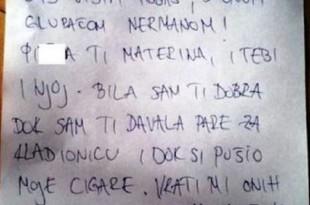 GLUPAČOM NERMANOM!
TI MATERINA, I TEBI
I NJOJ. BILA SAM TI DOBRA
DOK SAM TI DAVALA PARE ZA
KLADIONICU I DOK SI PUŠIO
MOJE CIGARE. VRATI MI ONIH